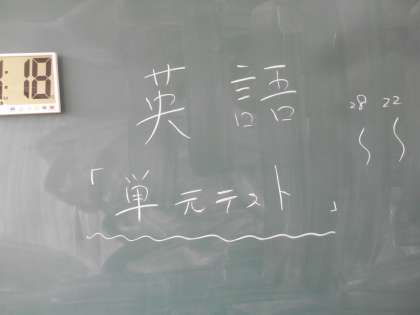 :18
英語
28 22
「単元テスト」